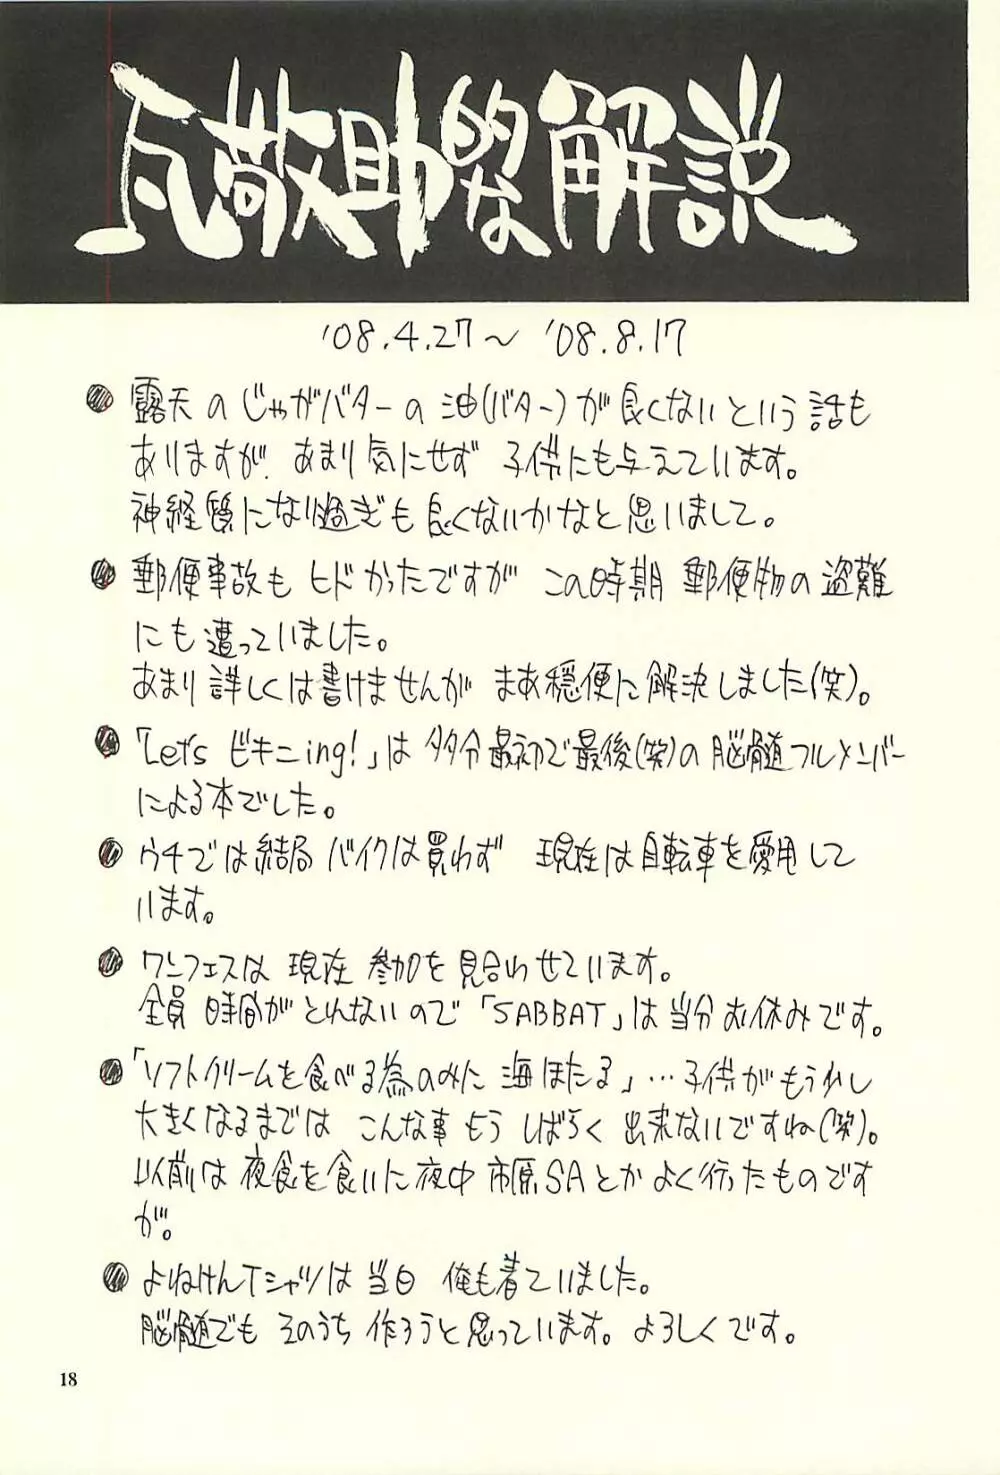 瓦敬助的な解説
'08.4.27〜'08.8.17
●露天のじゃがバターの油(バター)が良くないという話も
ありますが、あまり気にせず 子供にも与えています。
神経質になり過ぎも良くないかなと思いまして。
●郵便事故もヒドかったですが この時期 郵便物の盗難
にも遭っていました。
あまり詳しくは書けませんが まあ穏便に解決しました(笑)。
●「Let's ビキニing!」は多分最初で最後(笑)の脳髄フルメンバー
による本でした。
●ウチでは結局 バイクは買わず 現在は自転車を愛用して
います。
●ワンフェスは 現在 参加を見合わせています。
全員 時間がとれないので「SABBAT」は当分お休みです。
●「ソフトクリームを食べる為のみに 海ほたる」…子供がもう少し
大きくなるまでは こんな事 もう しばらく 出来ないですね(笑)。
以前は 夜食を食いに夜中 市原SAとか よく行ったものです
が。
●よねけんTシャツは 当日 俺も着ていました。
脳髄でも そのうち 作ろうと思っています。よろしくです。
18